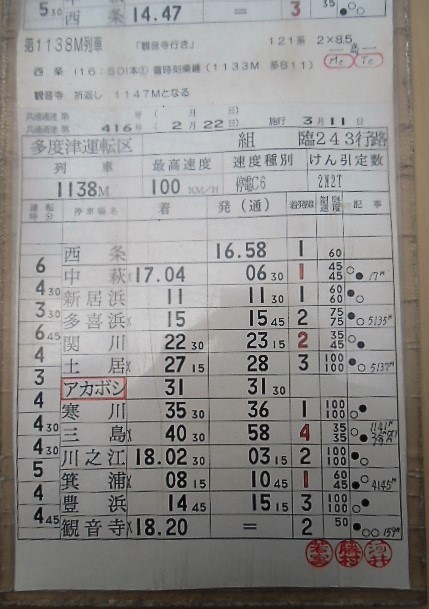 西 条 14.47 3 35
第1138M列車 「観音寺行き」 121系 2×8.5
西 条 (16:50)本① 着時刻乗継 (1133M 多811) Mc Tc
観音寺 折返し 1147Mとなる
月 日)
416号 ( 2月 22日) 施行 3月 11日
多度津運転区 組 臨243行路
列 車 最高速度 速度種別 けん引定数
1138M 100 KM/H 停電C6 2M2T
運転時分 停車場名 着 発(通) 着発線 記 事
西 条 16.58 1 60
6
中 萩 17.04 06 30 1 45 45 17M
4 30
新居浜 11 11 30 1 60 60
3 30
多喜浜 15 15 45 2 75 75 5135M
6 45
関 川 22 30 23 15 2 35 45
4
土 居 27 15 28 3 100 100 5137M
3
アカボシ 31 31 30
4
寒 川 35 30 36 1 100 100
4 30
三 島 40 30 58 4 35 35
4 30
川之江 18.02 30 03 15 2 100 100
5
箕 浦 08 15 10 45 1 45 60 4145M
4
豊 浜 14 45 15 15 3 100 100
4 45
観音寺 18.20 = 2 50 159M
藤村 河井